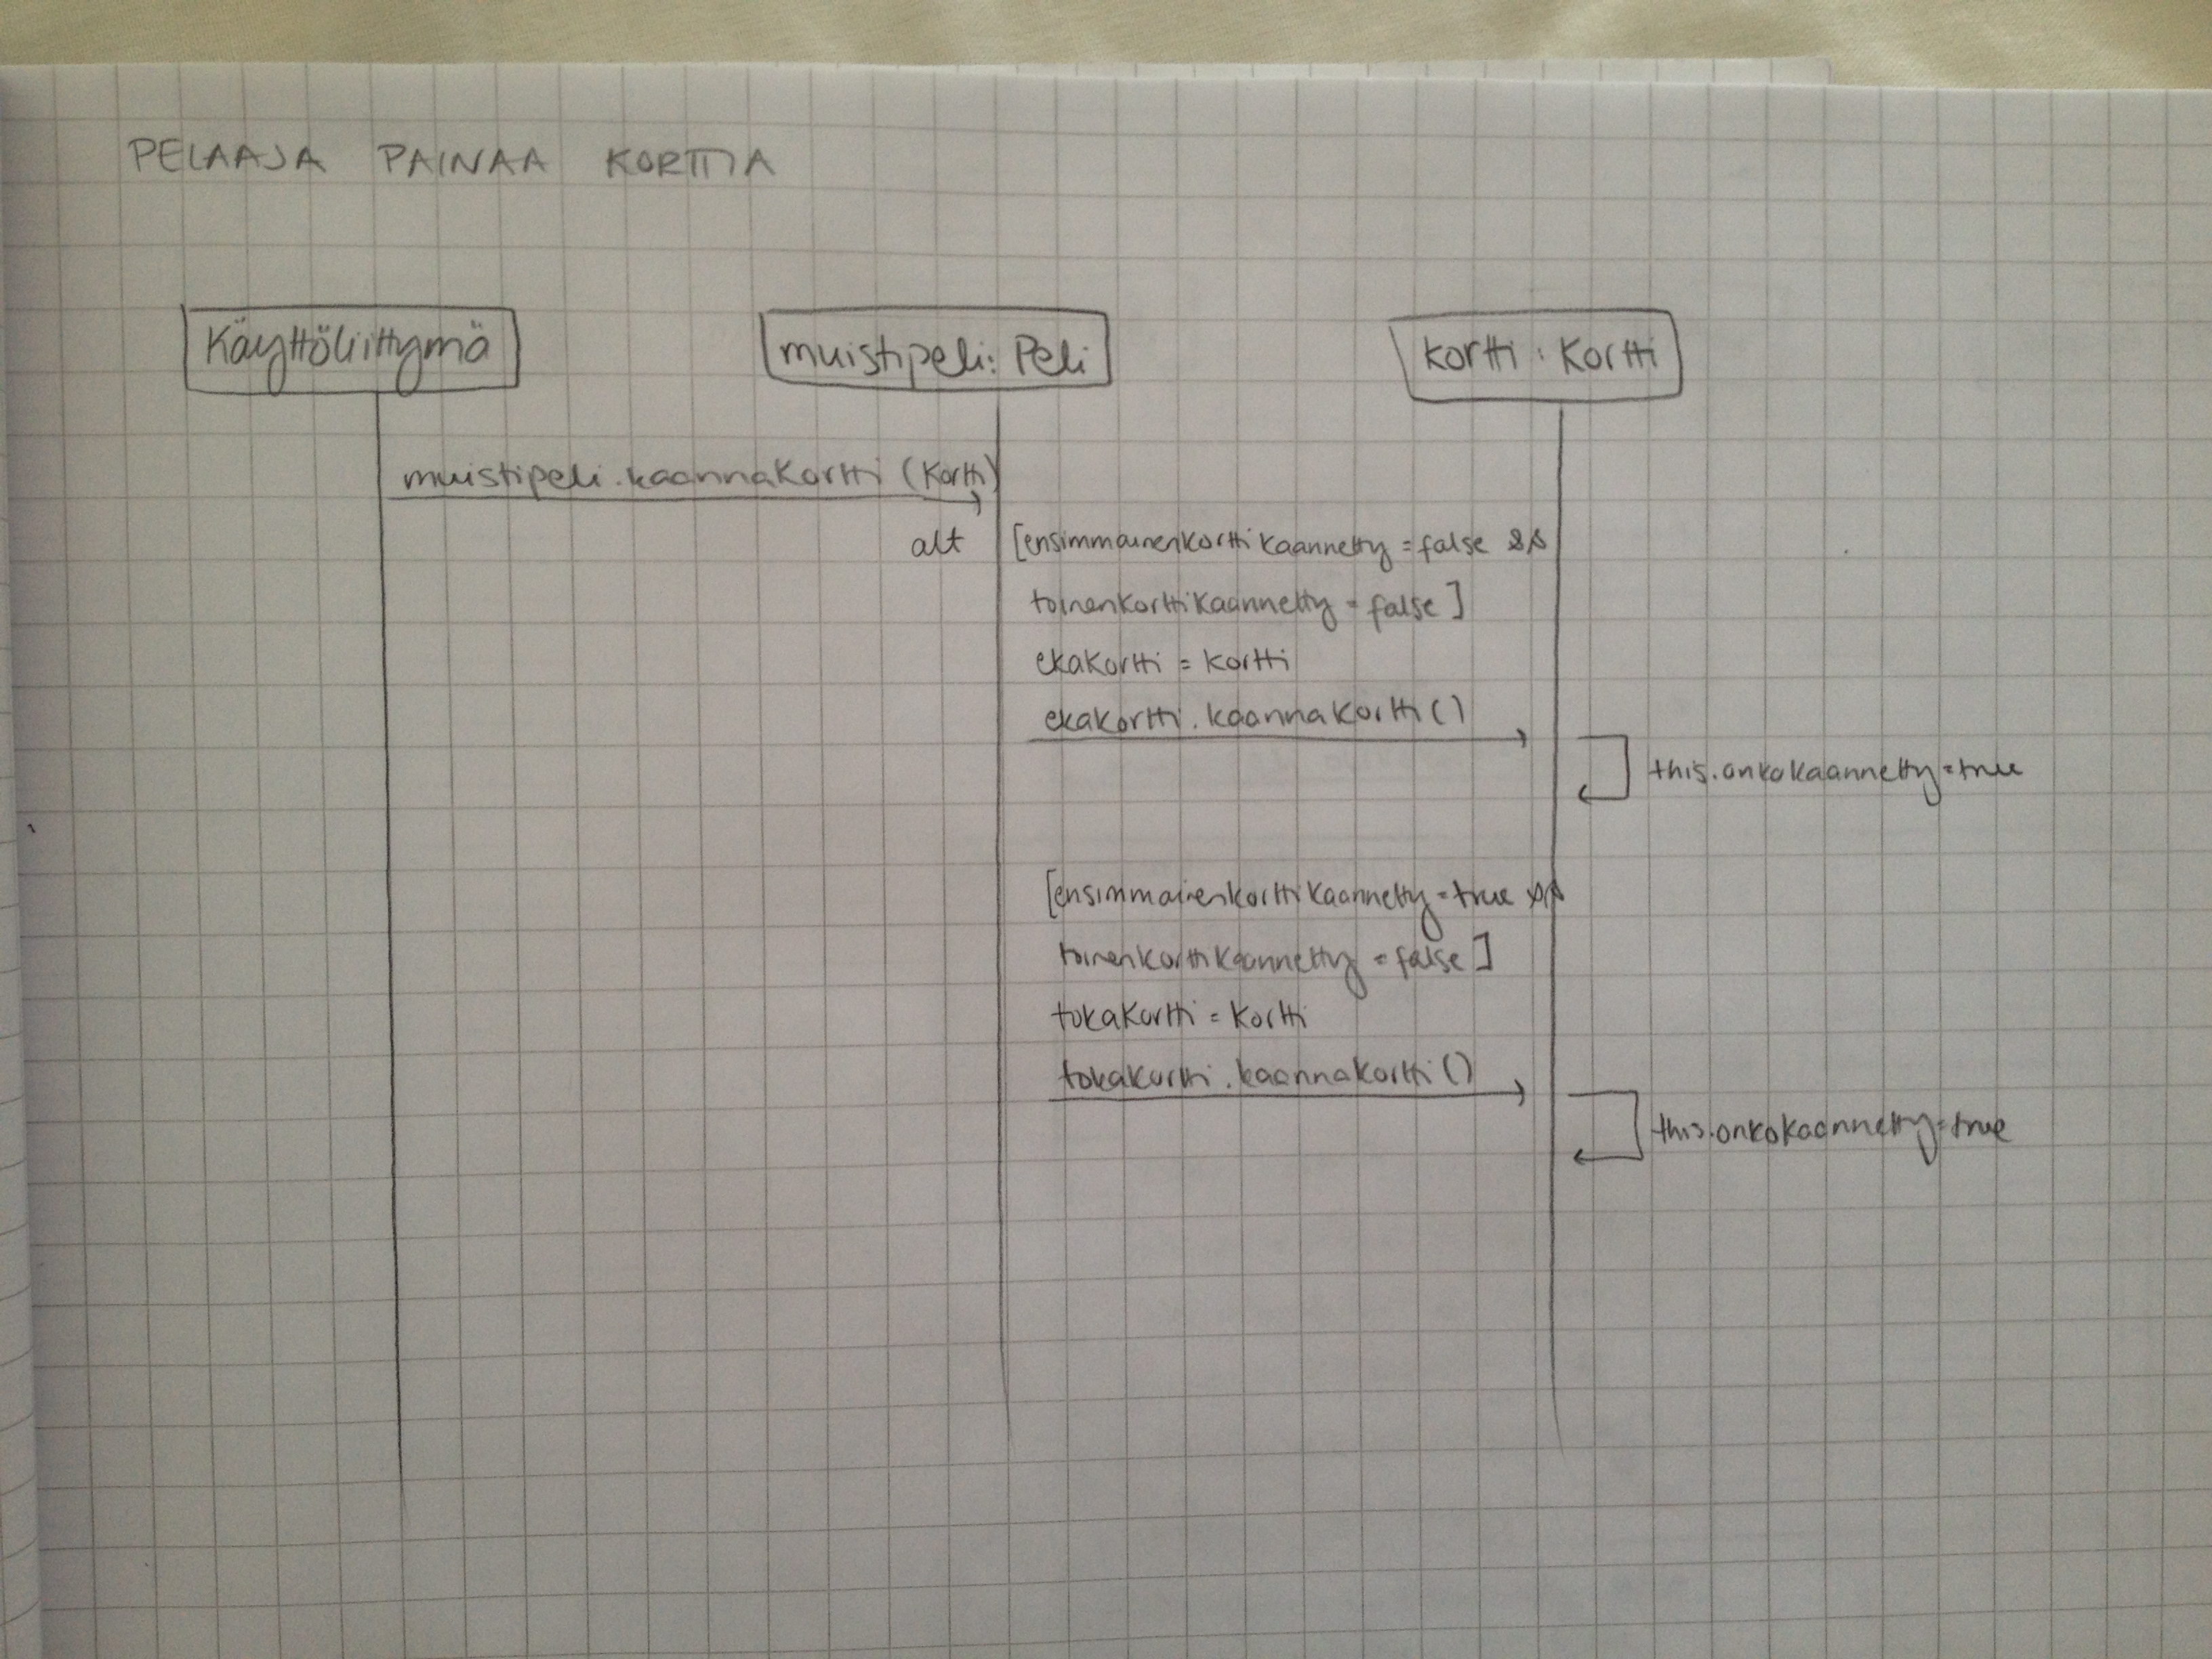 PELAAJA PAINAA KORTTIA
Käyttöliittymä
muistipeli: Peli
kortti: Kortti
muistipeli.kaannaKortti (kortti)
alt
[ensimmainenkorttikaannetty = false &&
toinenkorttikaannetty = false]
ekakortti = kortti
ekakortti.kaannaKortti()
this.onkokaannetty=true
[ensimmainenkorttikaannetty = true &&
toinenkorttikaannetty = false]
tokakortti = kortti
tokakortti.kaannakortti()
this.onkokaannetty=true